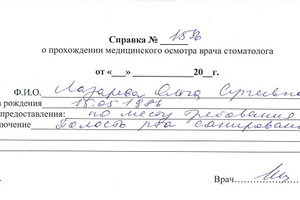 Справка № 158
о прохождении медицинского осмотра врача стоматолога
от «___» ________ 20__г.
Ф.И.О. Лазарева Ольга Сергеевна
а рождения 15.05.1986
предоставления: по месту требования
ючение Полость рта санирована
Врач